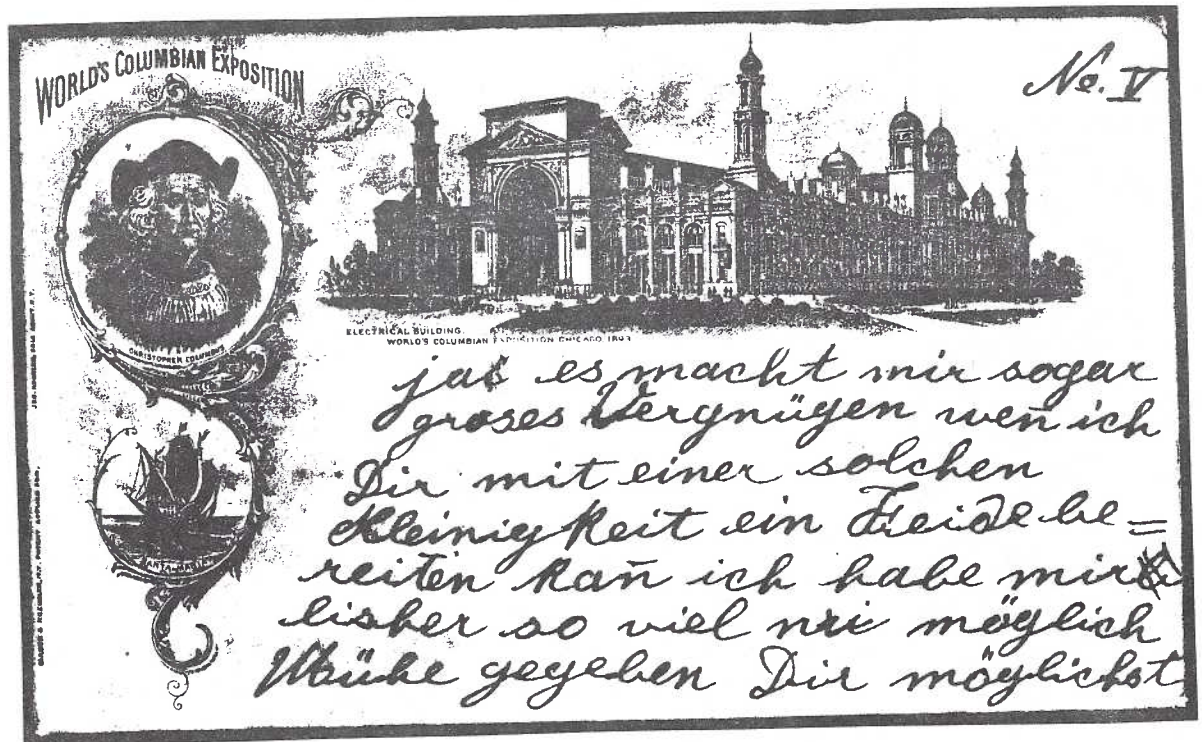 WORLD'S COLUMBIAN EXPOSITION
No. V
CHRISTOPHER COLUMBUS
ELECTRICAL BUILDING.
WORLD'S COLUMBIAN EXPOSITION CHICAGO 1893
SANTA-MARIA
ja es macht mir sogar
groses Vergnügen wen̄ ich
Dir mit einer solchen
Kleinigkeit ein Feide be=
reiten kan̄ ich habe mir
bisher so viel nri möglich
Mühe gegeben Dir möglichst